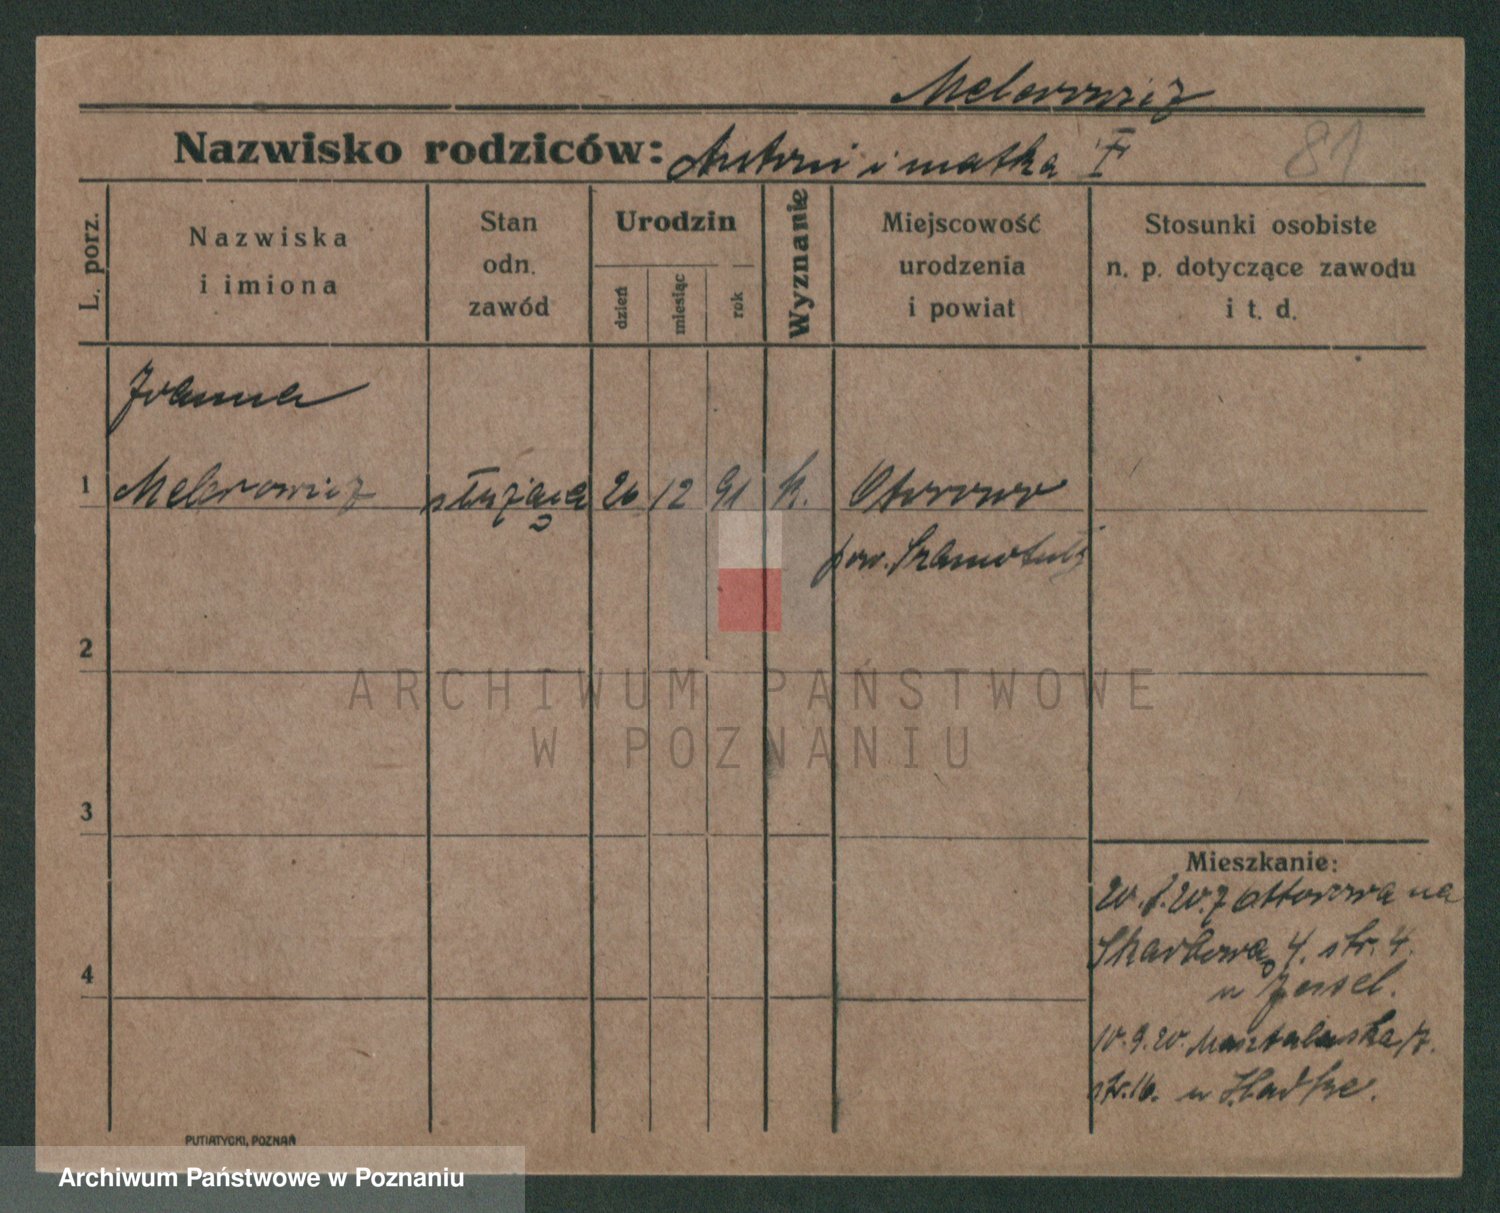 Melerowicz
Nazwisko rodziców: Antoni i matka F
81
L. porz.
Nazwiska
i imiona
Stan
odn.
zawód
Urodzin
dzień
miesiąc
rok
Wyznanie
Miejscowość
urodzenia
i powiat
Stosunki osobiste
n. p. dotyczące zawodu
i t. d.
Joanna
1 Melerowicz służąca 26 12 91 k. Otorowo
pow. Szamotuły
2
3
4
Mieszkanie:
20. z Ottorowa na
Skarbowa 4. str. 4.
u
10.9.20. Masztalarska 7.
str. 16. u Hadke.
PUTIATYCKI, POZNAŃ
ARCHIWUM PAŃSTWOWE
W POZNANIU
Archiwum Państwowe w Poznaniu